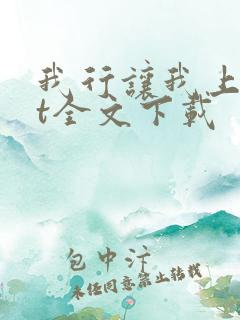 我行讓我上
t全文下載
包中汴
未经同意禁止转载